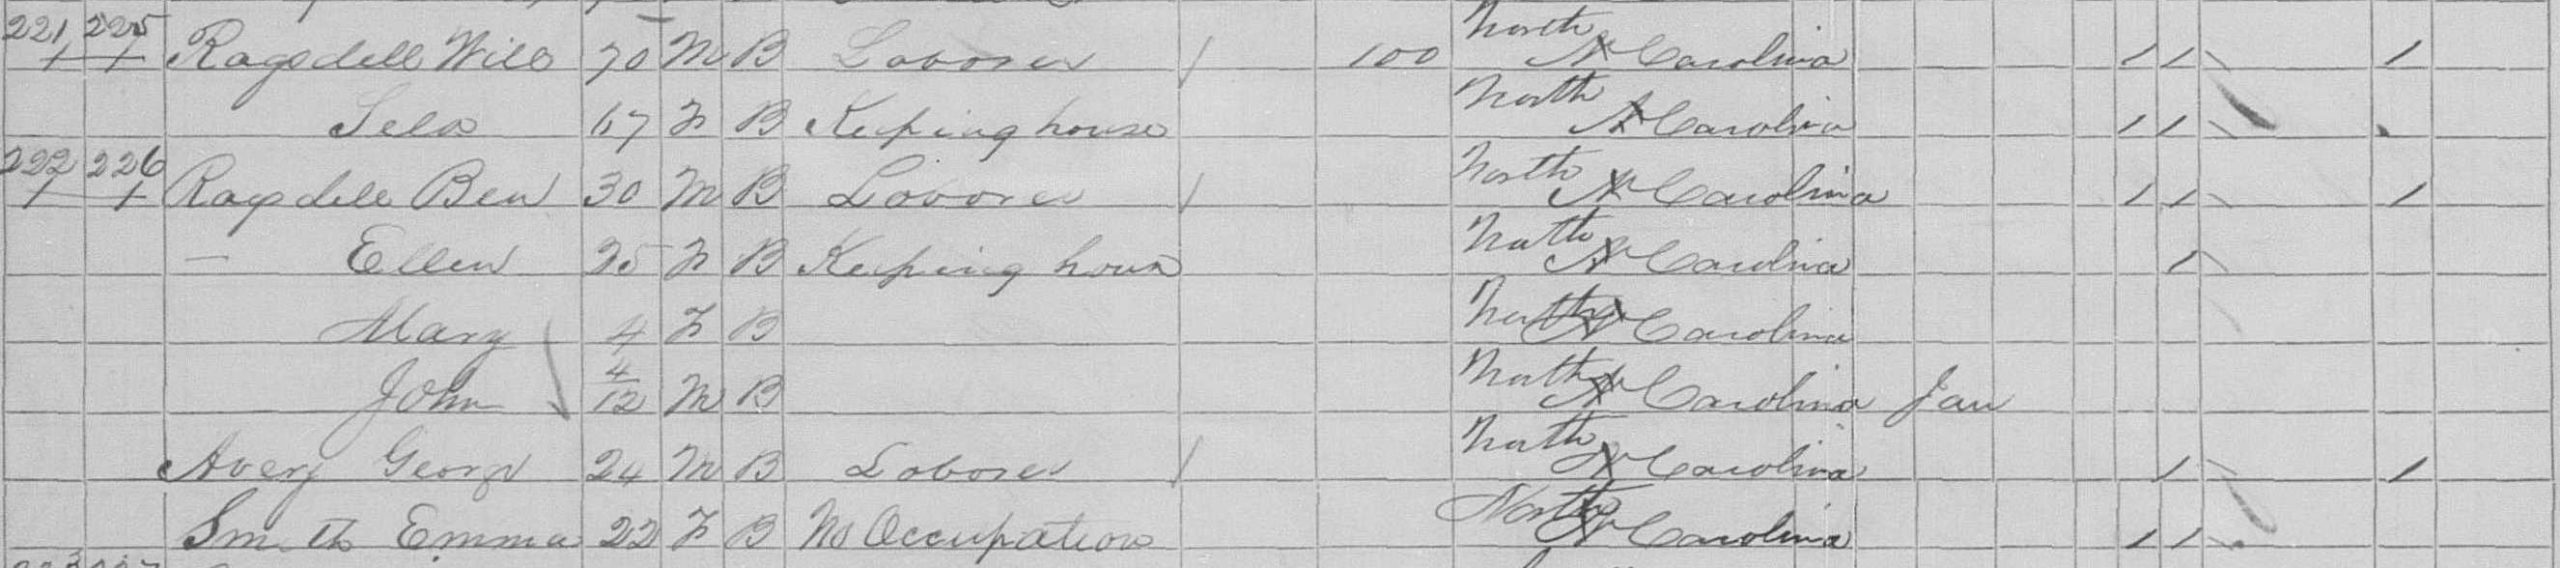 221 225 Ragsdell Will 70 M B Laborer 100 North N Carolina 1 1 1
67 F B Keeping house North N Carolina 1 1
222 226 Ragsdell Ben 30 M B Laborer North N Carolina 1 1 1
— Ellen 25 F B Keeping house North N Carolina 1
Mary 4 F B North N Carolina
John 4/12 M B North N Carolina Jan
Avery George 24 M B Laborer North N Carolina 1 1
Smith Emma 22 F B No Occupation North N Carolina 1 1